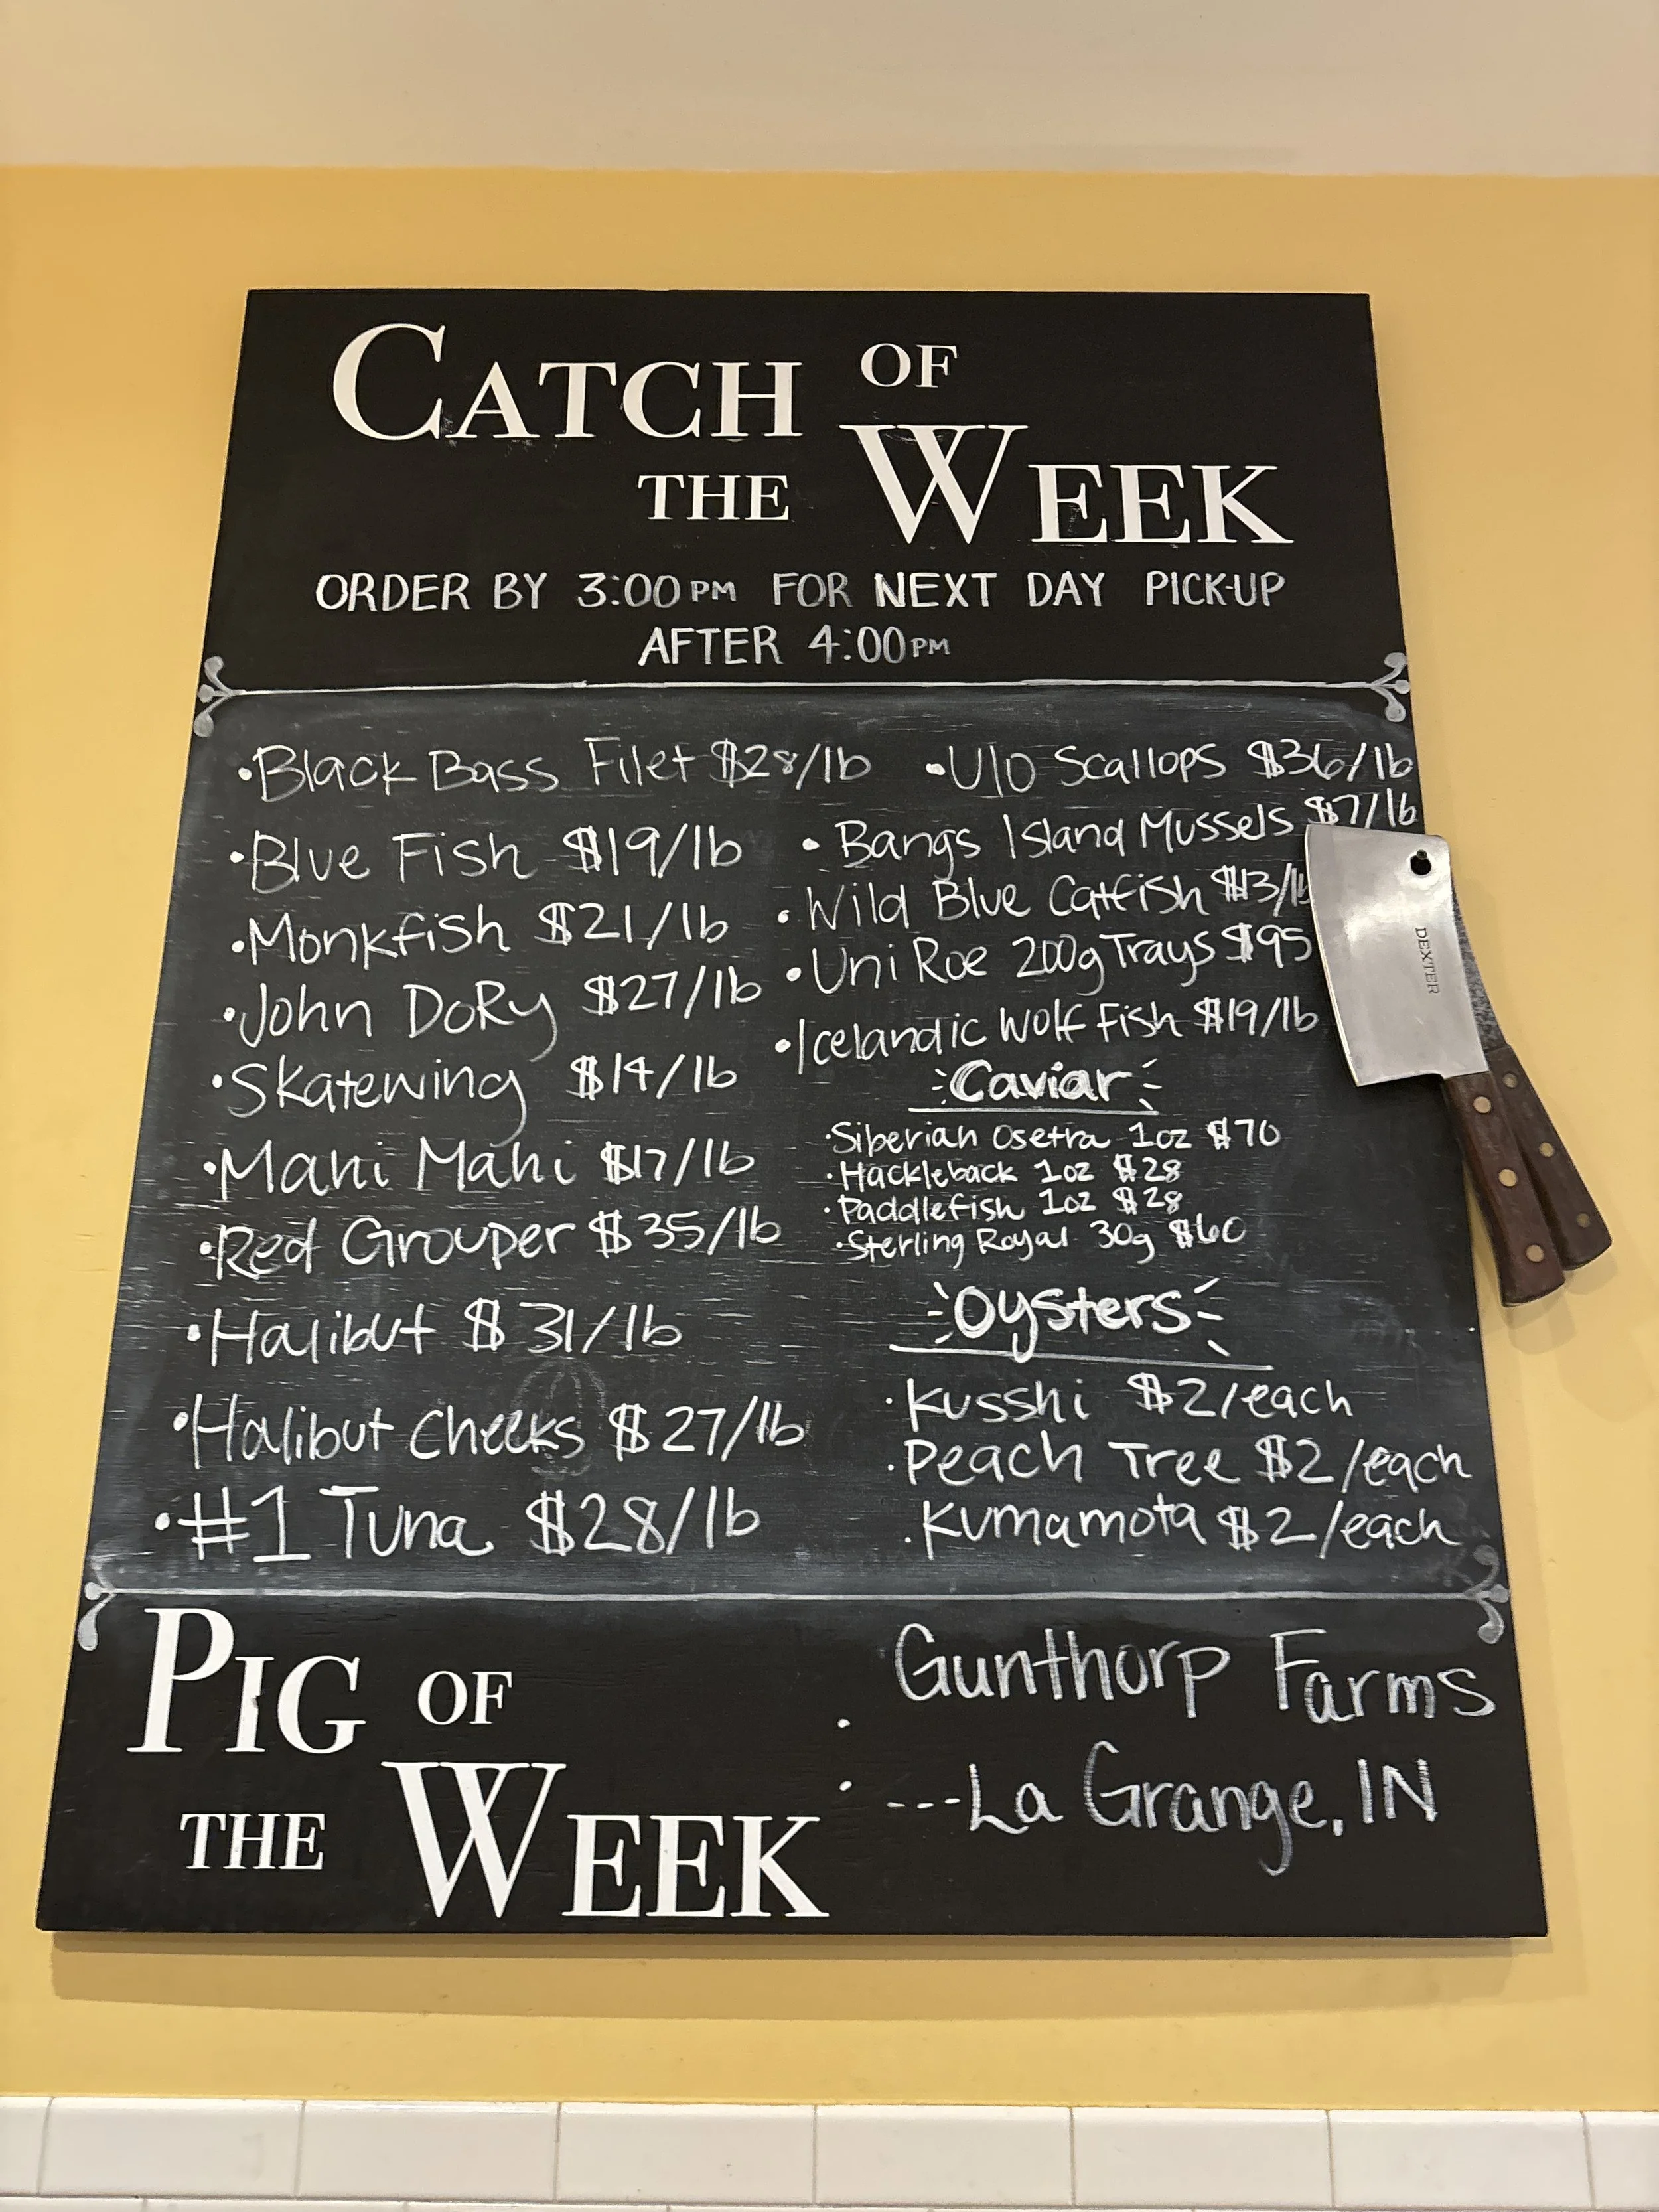 CATCH OF
THE WEEK
ORDER BY 3:00PM FOR NEXT DAY PICK-UP
AFTER 4:00PM
•Black Bass Filet $28/lb
•Blue Fish $19/lb
•Monkfish $21/lb
•John DoRy $27/lb
•Skatewing $14/lb
•Mahi Mahi $17/lb
•Red Grouper $35/lb
•Halibut $31/lb
•Halibut Cheeks $27/lb
•#1 Tuna $28/lb
•U10 Scallops $36/lb
•Bangs Island Mussels $7/lb
•Wild Blue Catfish $13/lb
•Uni Roe 200g Trays $95
•Icelandic Wolf Fish $19/lb
Caviar
•Siberian Osetra 1oz $70
•Hackleback 1oz $28
•Paddlefish 1oz $28
•Sterling Royal 30g $60
Oysters
•Kusshi $2/each
•Peach Tree $2/each
•Kumamota $2/each
DEXTER
PIG OF
THE WEEK
: Gunthorp Farms
---La Grange, IN